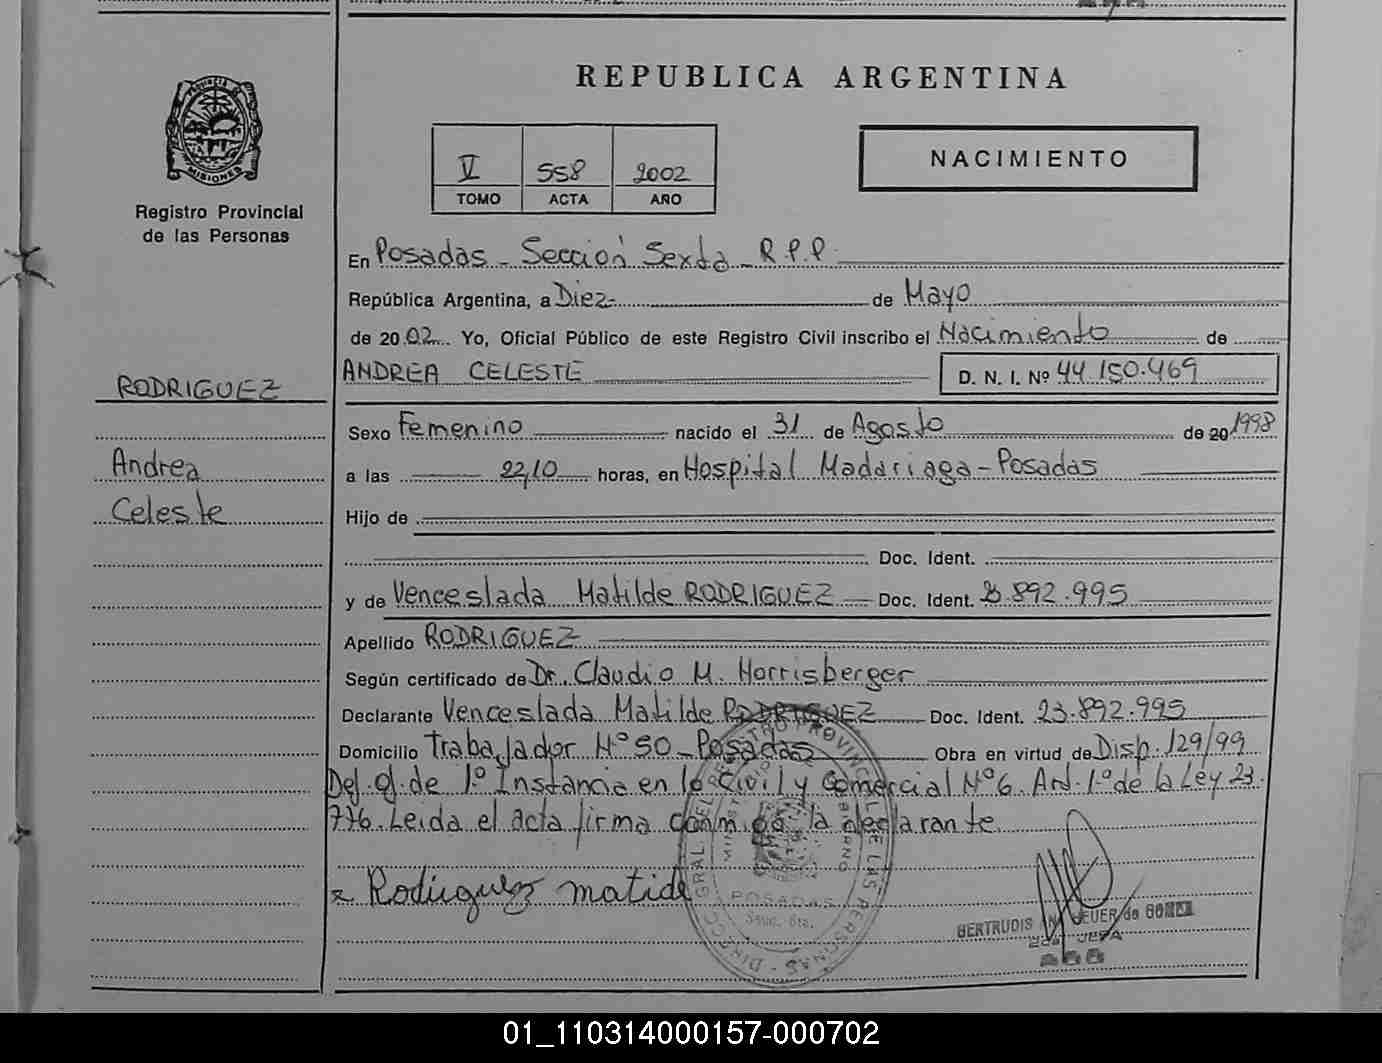 REPUBLICA ARGENTINA
PROVINCIA DE
MISIONES
Registro Provincial
de las Personas
V 558 2002
TOMO ACTA AÑO
NACIMIENTO
En Posadas - Sección Sexta - R.P.P.
República Argentina, a Diez de Mayo
de 2002 Yo, Oficial Público de este Registro Civil inscribo el Nacimiento de
ANDREA CELESTE D. N. I. Nº 44.150.469
RODRIGUEZ
Andrea
Celeste
Sexo Femenino nacido el 31 de Agosto de 20 1998
a las 22,10 horas, en Hospital Madariaga - Posadas
Hijo de
Doc. Ident.
y de Venceslada Matilde RODRIGUEZ Doc. Ident. 23.892.995
Apellido RODRIGUEZ
Según certificado de Dr. Claudio M. Horrisberger
Declarante Venceslada Matilde RODRIGUEZ Doc. Ident. 23.892.995
Domicilio Trabajador Nº 50 - Posadas Obra en virtud de Disp. 129/99
Del J. de 1º Instancia en lo Civil y Comercial Nº 6. Art. 1º de la Ley 23.
776. Leida el acta firma conmigo la declarante.
x Rodriguez matide
POSADAS
GERTRUDIS
JEFA
01_110314000157-000702